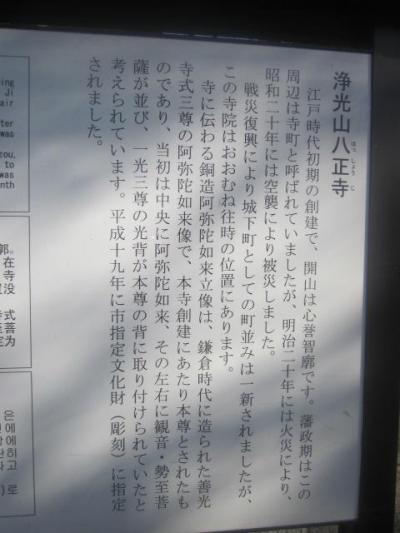 浄光山八正寺
はっしょうじ
江戸時代初期の創建で、開山は心誉智廓です。藩政期はこの
周辺は寺町と呼ばれていましたが、明治二十年には火災により、
昭和二十年には空襲により被災しました。
戦災復興により城下町としての町並みは一新されましたが、
この寺院はおおむね往時の位置にあります。
寺に伝わる銅造阿弥陀如来立像は、鎌倉時代に造られた善光
寺式三尊の阿弥陀如来像で、本寺創建にあたり本尊とされたも
のであり、当初は中央に阿弥陀如来、その左右に観音・勢至菩
薩が並び、一光三尊の光背が本尊の背に取り付けられていたと
考えられています。平成十九年に市指定文化財（彫刻）に指定
されました。
ing
Ji
air
ter
was
tou,
to
was
nth
郭。
在
寺
没
式
善为
至定
은
에에
히고
로